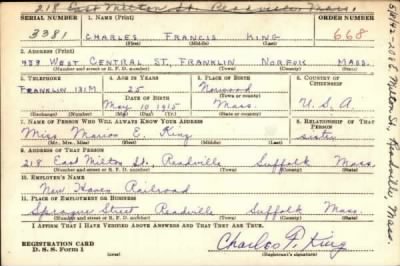 218 East Milton St. Readville Mass.
SERIAL NUMBER 1. NAME (Print) ORDER NUMBER
3381 CHARLES FRANCIS KING 668
(First) (Middle) (Last)
2. ADDRESS (Print)
439 WEST CENTRAL ST., FRANKLIN NORFOLK MASS.
(Number and street or R. F. D. number) (Town) (County) (State)
3. TELEPHONE 4. AGE IN YEARS 5. PLACE OF BIRTH 6. COUNTRY OF CITIZENSHIP
FRANKLIN 131M 25 Norwood
DATE OF BIRTH (Town or county)
May 10, 1915 Mass. U.S.A.
(Exchange) (Number) (Mo.) (Day) (Yr.) (State or country)
7. NAME OF PERSON WHO WILL ALWAYS KNOW YOUR ADDRESS 8. RELATIONSHIP OF THAT PERSON
Miss Marion E. King sister
(Mr., Mrs., Miss) (First) (Middle) (Last)
9. ADDRESS OF THAT PERSON
218 East Milton St., Readville Suffolk Mass.
(Number and street or R. F. D. number) (Town) (County) (State)
10. EMPLOYER'S NAME
New Haven Railroad
11. PLACE OF EMPLOYMENT OR BUSINESS
Sprague Street Readville Suffolk Mass.
(Number and street or R. F. D. number) (Town) (County) (State)
I AFFIRM THAT I HAVE VERIFIED ABOVE ANSWERS AND THAT THEY ARE TRUE.
REGISTRATION CARD
D. S. S. Form 1
Charles F. King
(Registrant's signature)
Milton St., Readville, Mass.